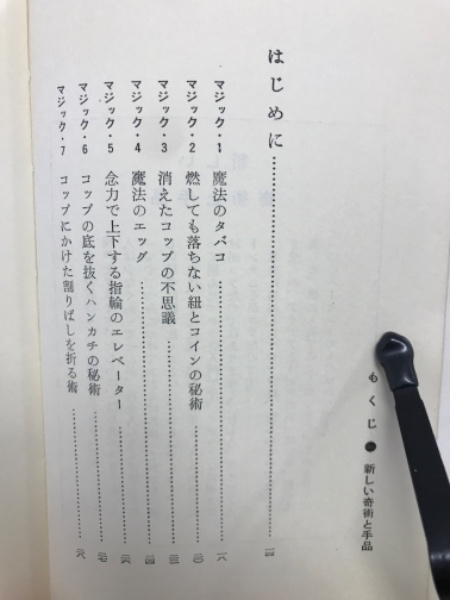 もくじ ● 新しい奇術と手品
はじめに……………一四
マジック・1 魔法のタバコ……………一八
マジック・2 燃しても落ちない紐とコインの秘術……………二〇
マジック・3 消えたコップの不思議……………
マジック・4 魔法のエッグ……………二四
マジック・5 念力で上下する指輪のエレベーター……………二六
マジック・6 コップの底を抜くハンカチの秘術……………二七
マジック・7 コップにかけた割りばしを折る術……………二八